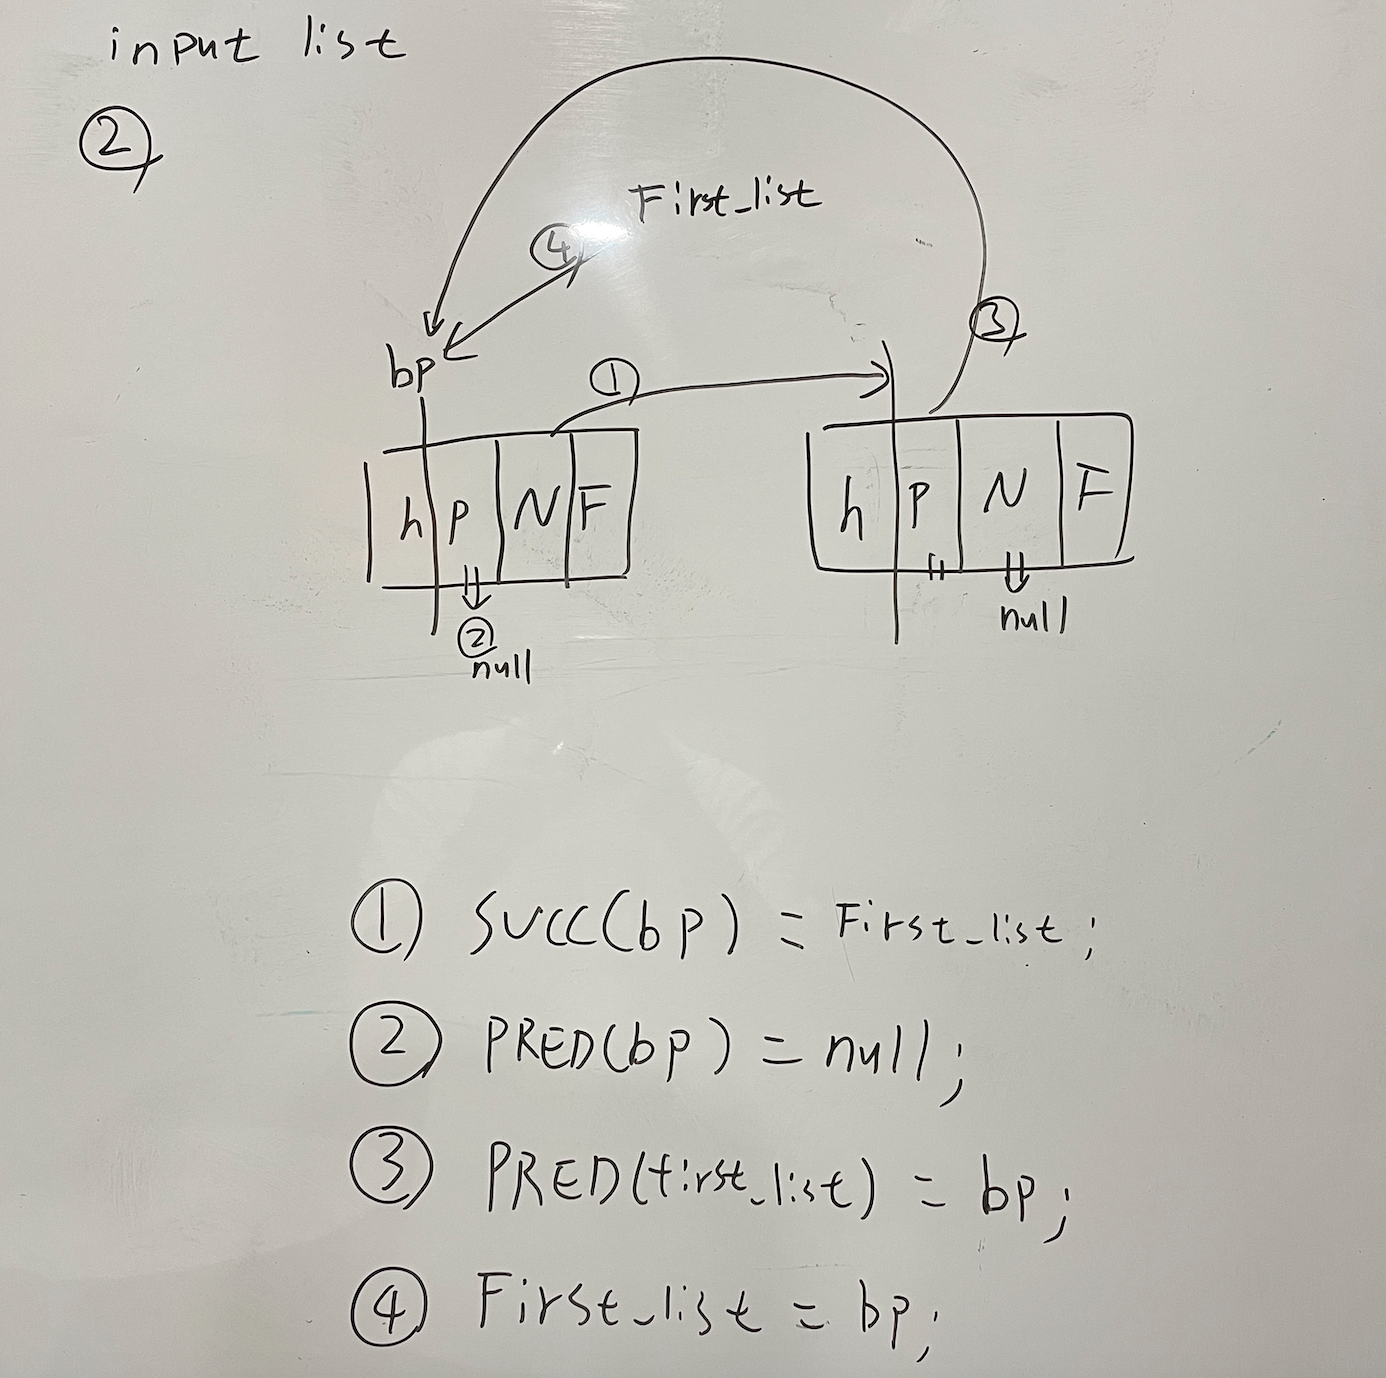 input list
②
First_list
④
③
bp
①
h P N F
h P N F
null
②
null
① SUCC(bp) = First_list;
② PRED(bp) = null;
③ PRED(first_list) = bp;
④ First_list = bp;